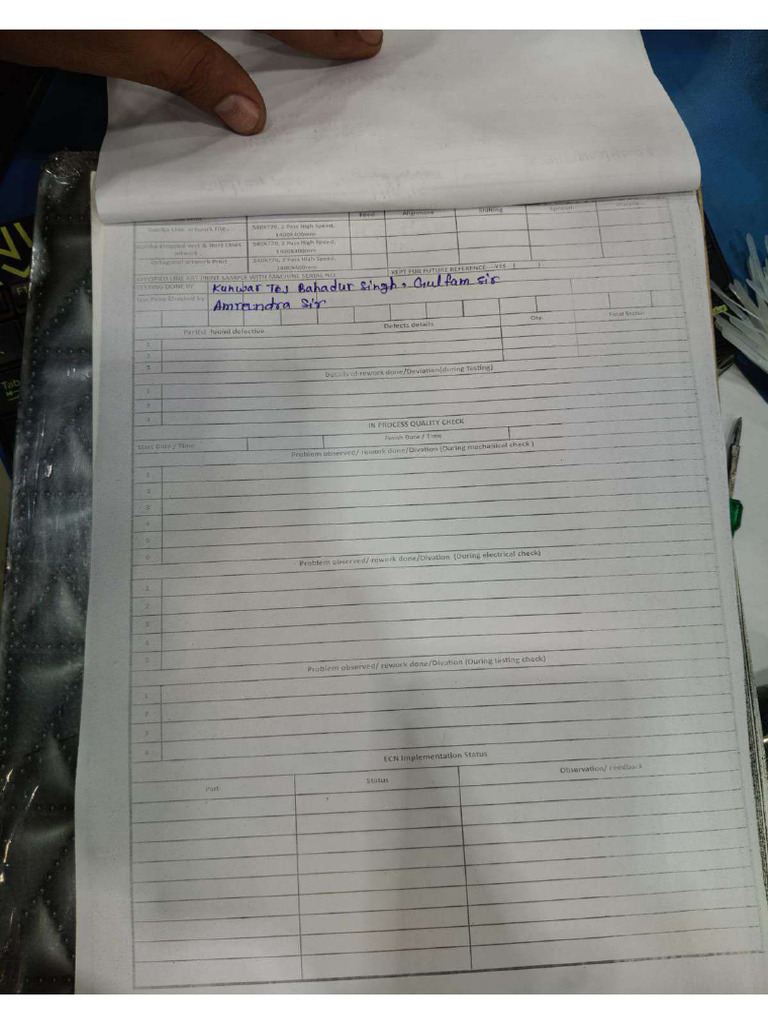 Feed Alignment Shifting
Artwork File, 540X720, 2 Pass High Speed, 1400X400mm
540X720, 2 Pass High Speed,
Octagonal Artwork Print 540X720, 2 Pass High Speed,
SPECIFIED LINE ART PRINT SAMPLE WITH MACHINE SERIAL NO. KEPT FOR FUTURE REFERENCE YES ( )
TESTING DONE BY Kunwar Tej Bahadur Singh, Gulfam Sir
Checked by Amrendra Sir
Part(s) found defective Defects details Qty. Final Status
1
2
3
Details of rework done/Deviation(during Testing)
1
2
3
4
IN PROCESS QUALITY CHECK
Start Date / Time Finish Date / Time
Problem observed/ rework done/Divation (During mechanical check )
1
2
3
4
5
6
Problem observed/ rework done/Divation (During electrical check)
1
2
3
4
5
Problem observed/ rework done/Divation (During testing check)
1
2
3
4
ECN Implementation Status
Part Status Observation/ Feedback